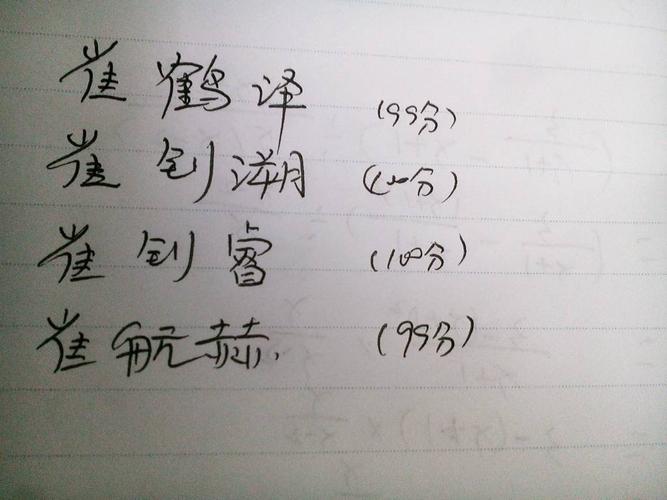 崔鹤译 (99分)
崔钊溯 (100分)
崔钊睿 (100分)
崔航赫. (99分)